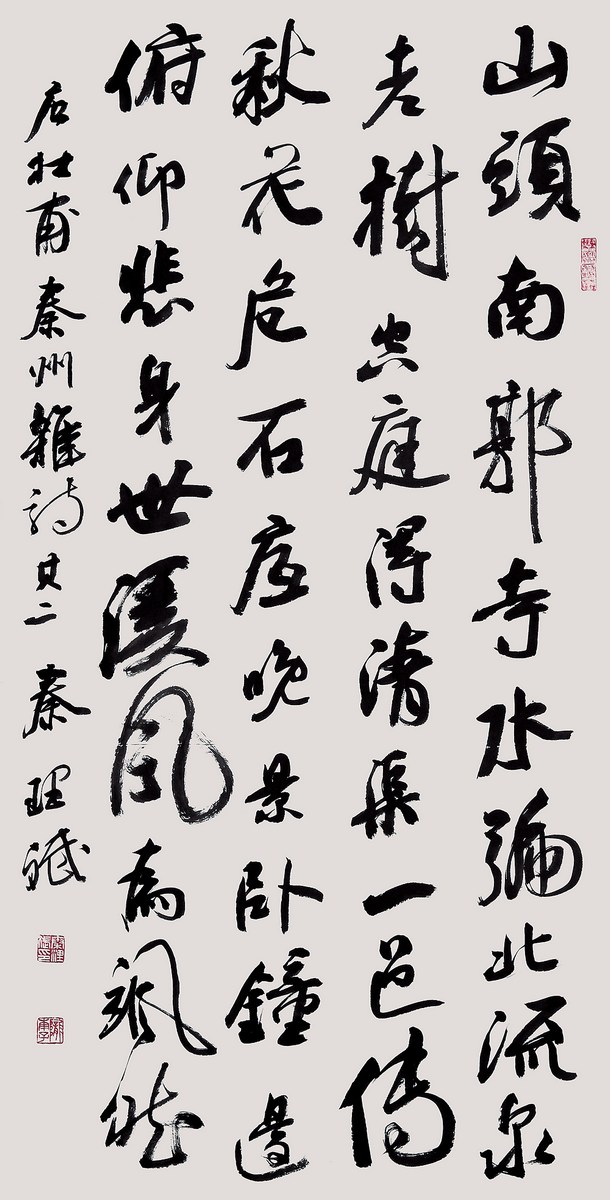 山頭南郭寺水彌北流泉
老樹空庭得清渠一邑傳
秋花危石底晚景卧鐘邊
俯仰悲身世溪風為颯然
右杜甫秦州雜詩其二 秦理